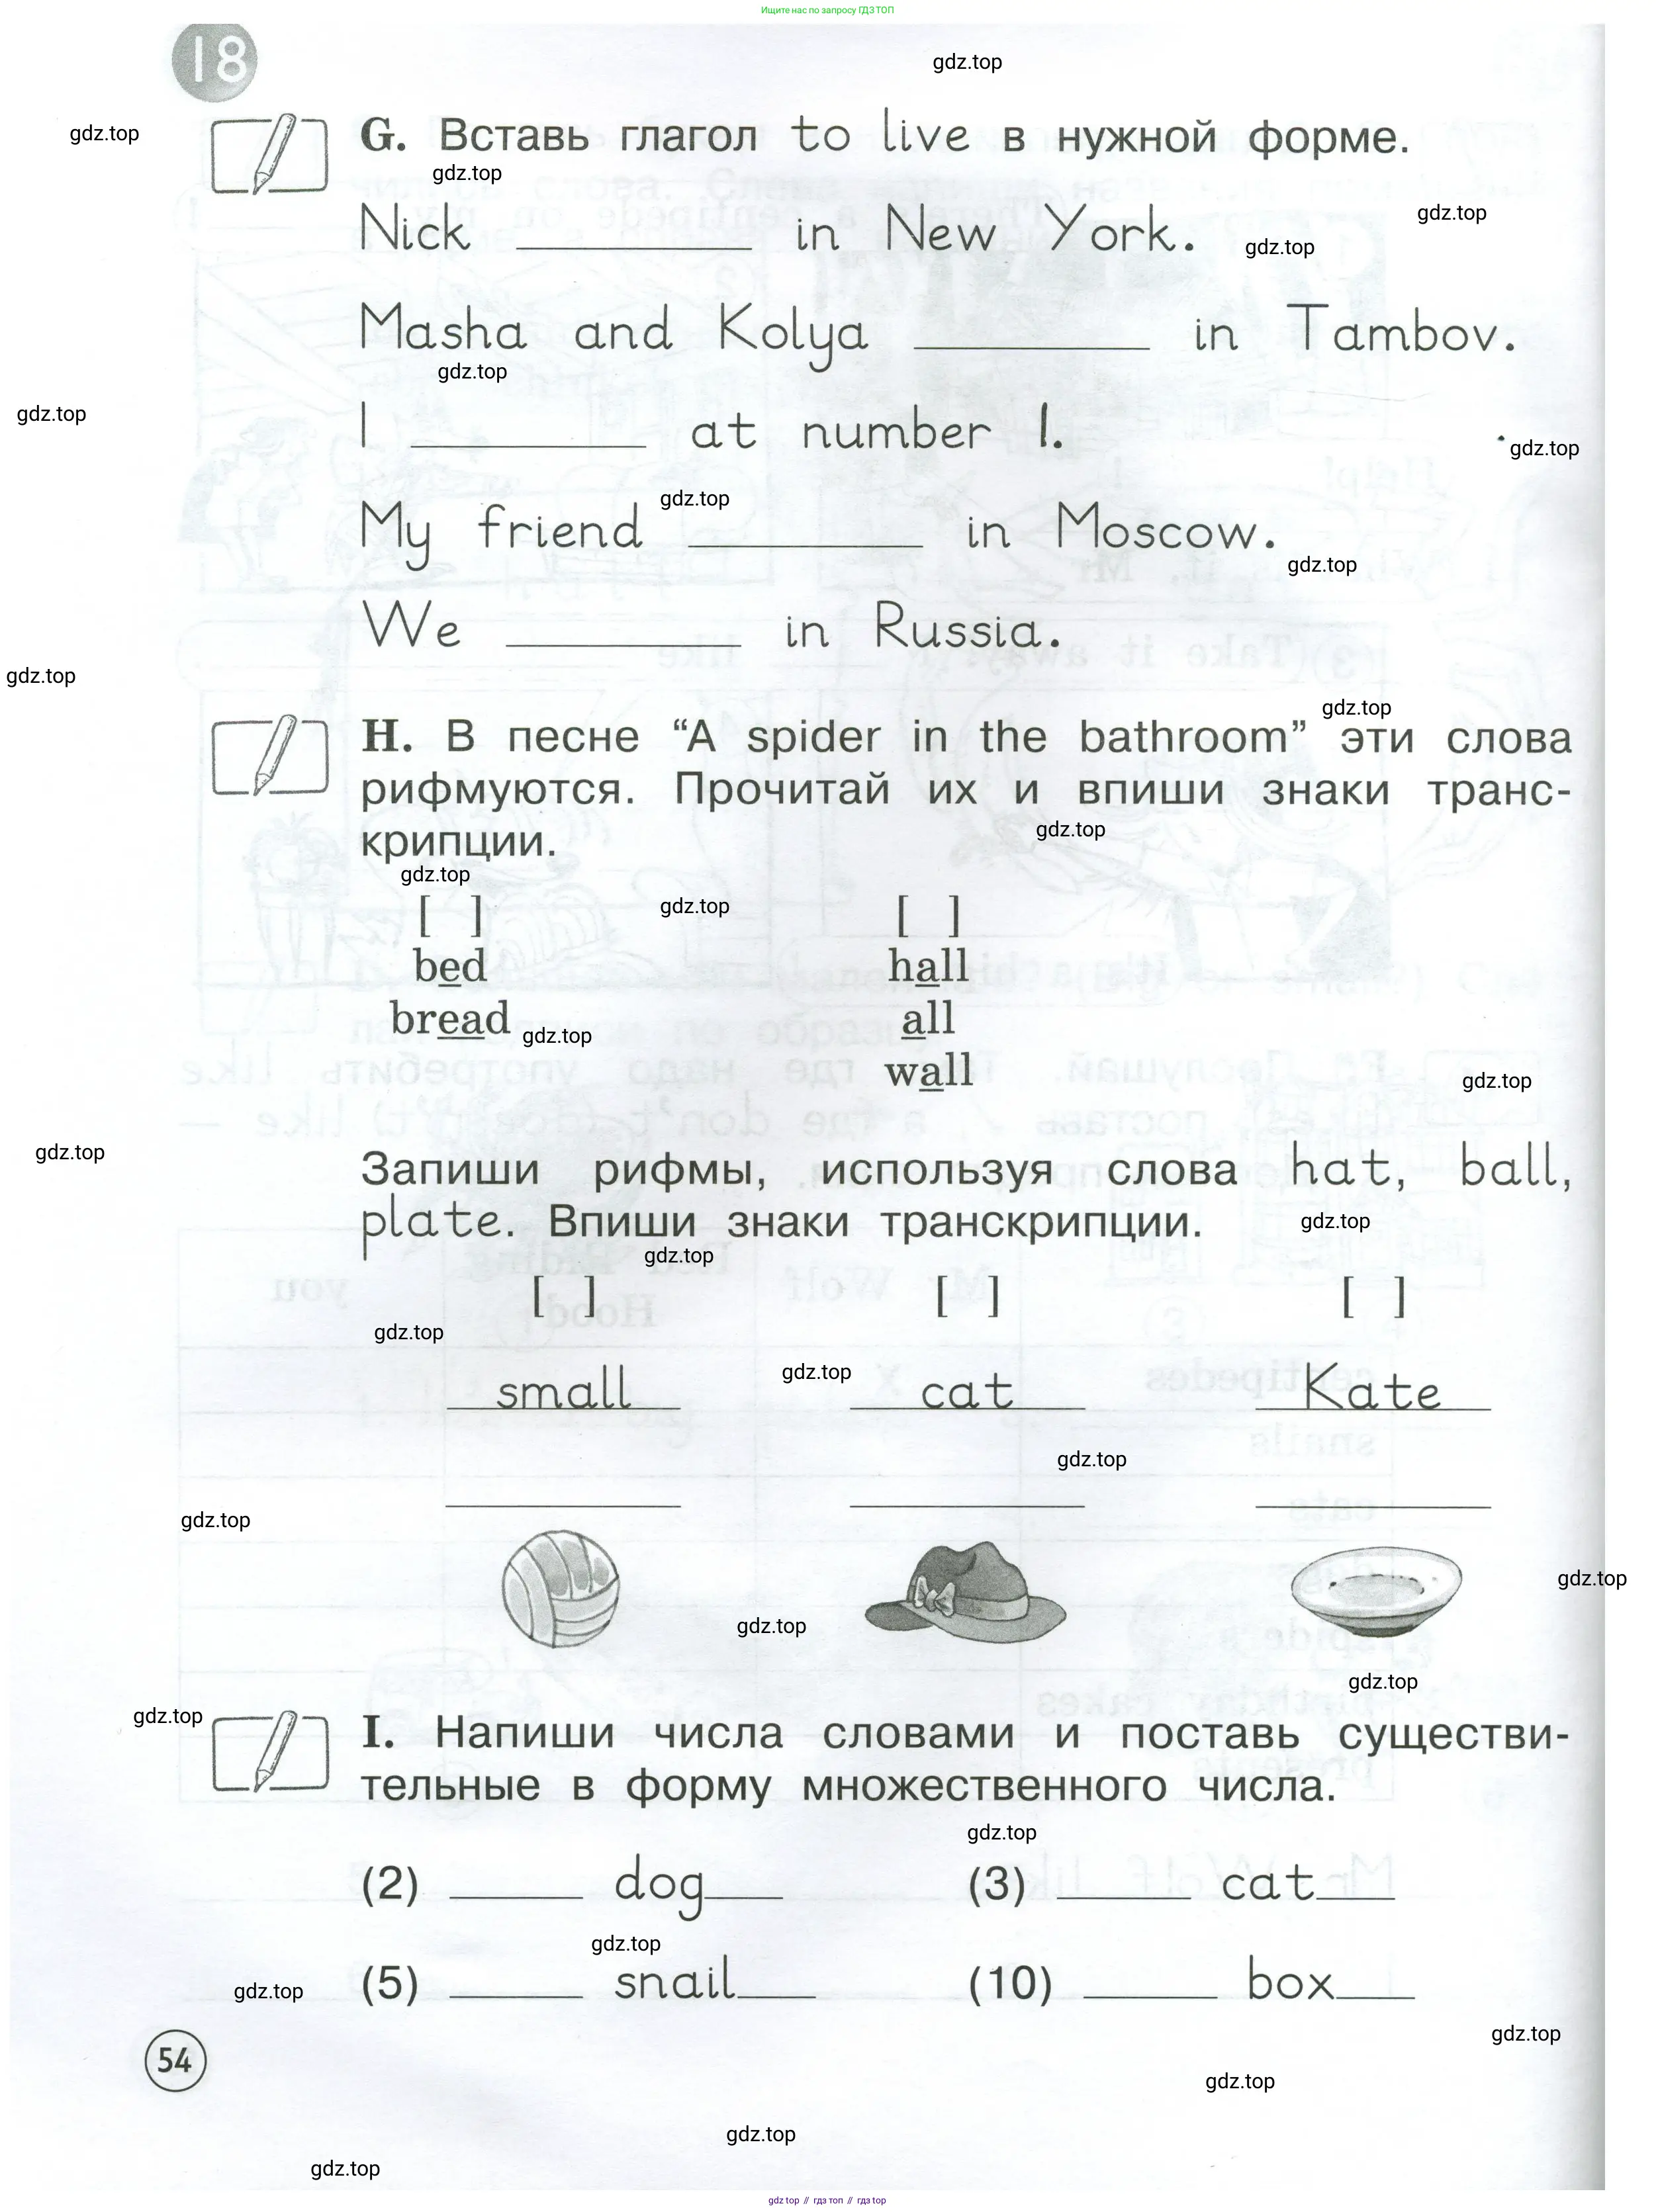 Ищите нас по запросу ГДЗ ТОП
18
gdz.top
gdz.top
G. Вставь глагол to live в нужной форме.
gdz.top
gdz.top
Nick ________ in New York.
gdz.top
Masha and Kolya ________ in Tambov.
gdz.top
gdz.top
I ________ at number 1.
gdz.top
gdz.top
My friend ________ in Moscow.
gdz.top
We ________ in Russia.
gdz.top
gdz.top
H. В песне “A spider in the bathroom” эти слова
рифмуются. Прочитай их и впиши знаки транс-
gdz.top
крипции.
gdz.top
gdz.top
[ ] [ ]
bed hall
bread all
gdz.top
wall
gdz.top
gdz.top
Запиши рифмы, используя слова hat, ball,
plate. Впиши знаки транскрипции.
gdz.top
gdz.top
[ ] [ ] [ ]
gdz.top
gdz.top
small cat Kate
gdz.top
gdz.top
gdz.top
gdz.top
gdz.top
gdz.top
I. Напиши числа словами и поставь существи-
тельные в форму множественного числа.
gdz.top
(2) _____ dog___ (3) _____ cat___
gdz.top
(5) _____ snail___ (10) _____ box___
gdz.top
gdz.top
54
gdz.top
gdz.top
gdz.top
gdz top // гдз топ // гдз top